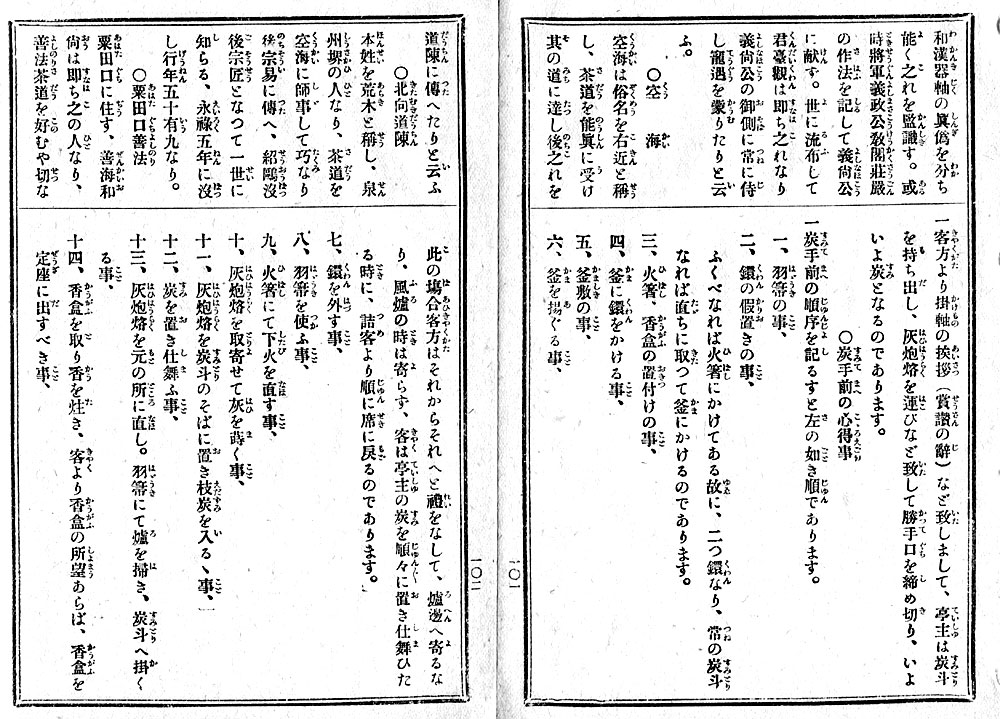 和漢器軸の眞僞を分ち
能く之れを監識す。或
時將軍義政公數閣莊嚴
の作法を記して義尙公
に献す。世に流布して
君臺觀は即ち之れなり
義尙公の御側に常に侍
し寵遇を蒙りたりと云
ふ。
○空海
空海は俗名を右近と稱
し、茶道を能眞に受け
其の道に達し後之れを
一客方より掛軸の挨拶(賞讃の辭)など致しまして、亭主は炭斗
を持ち出し、灰炮烙を運びなど致して勝手口を締め切り、いよ
いよ炭となるのであります。
○炭手前の心得事
一炭手前の順序を記るすと左の如き順であります。
一、羽箒の事、
二、鐶の假置きの事、
ふくべなれば火箸にかけてある故に、二つ鐶なり、常の炭斗
なれば直ちに取つて釜にかけるのであります。
三、火箸、香盒の置付けの事、
四、釜に鐶をかける事、
五、釜敷の事、
六、釜を揚ぐる事、
一〇一
道陳に傳へたりと云ふ
○北向道陳
本姓を荒木と稱し、泉
州堺の人なり、茶道を
空海に師事して巧なり
後宗易に傳へ、紹鷗沒
後宗匠となつて一世に
知らる、永祿五年に沒
し行年五十有九なり。
○粟田口善法
粟田口に住す、善海和
尙は即ち之の人なり、
善法茶道を好むや切な
此の塲合客方はそれからそれへと禮をなして、爐邊へ寄るな
り、風爐の時は寄らず、客は亭主の炭を順々に置き仕舞ひた
る時に、詰客より順に席に戾るのであります。
七、鐶を外す事、
八、羽箒を使ふ事、
九、火箸にて下火を直す事、
十、灰炮烙を取寄せて灰を蒔く事、
十一、灰炮烙を炭斗のそばに置き枝炭を入るゝ事、
十二、炭を置き仕舞ふ事、
十三、灰炮烙を元の所に直し。羽箒にて爐を掃き、炭斗へ掛く
る事、
十四、香盒を取り香を炷き、客より香盒の所望あらば、香盒を
定座に出すべき事、
一〇二